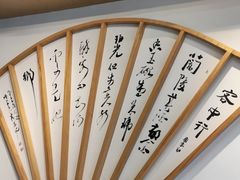 客中行
蘭陵美酒鬱金
香玉碗盛来琥
珀光但使主人
能醉客不知何
處是他
鄉